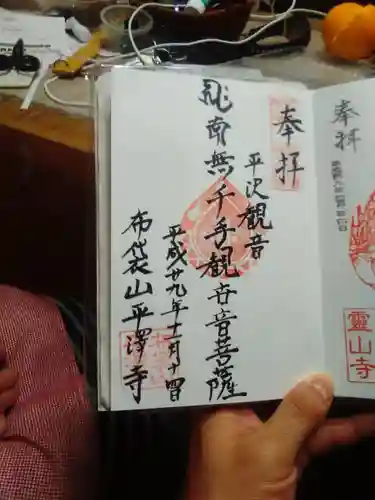 奉拝
平沢観音
南無千手観世音菩薩
平成廿九年十一月十四日
布袋山平澤寺
奉拝
靈山寺